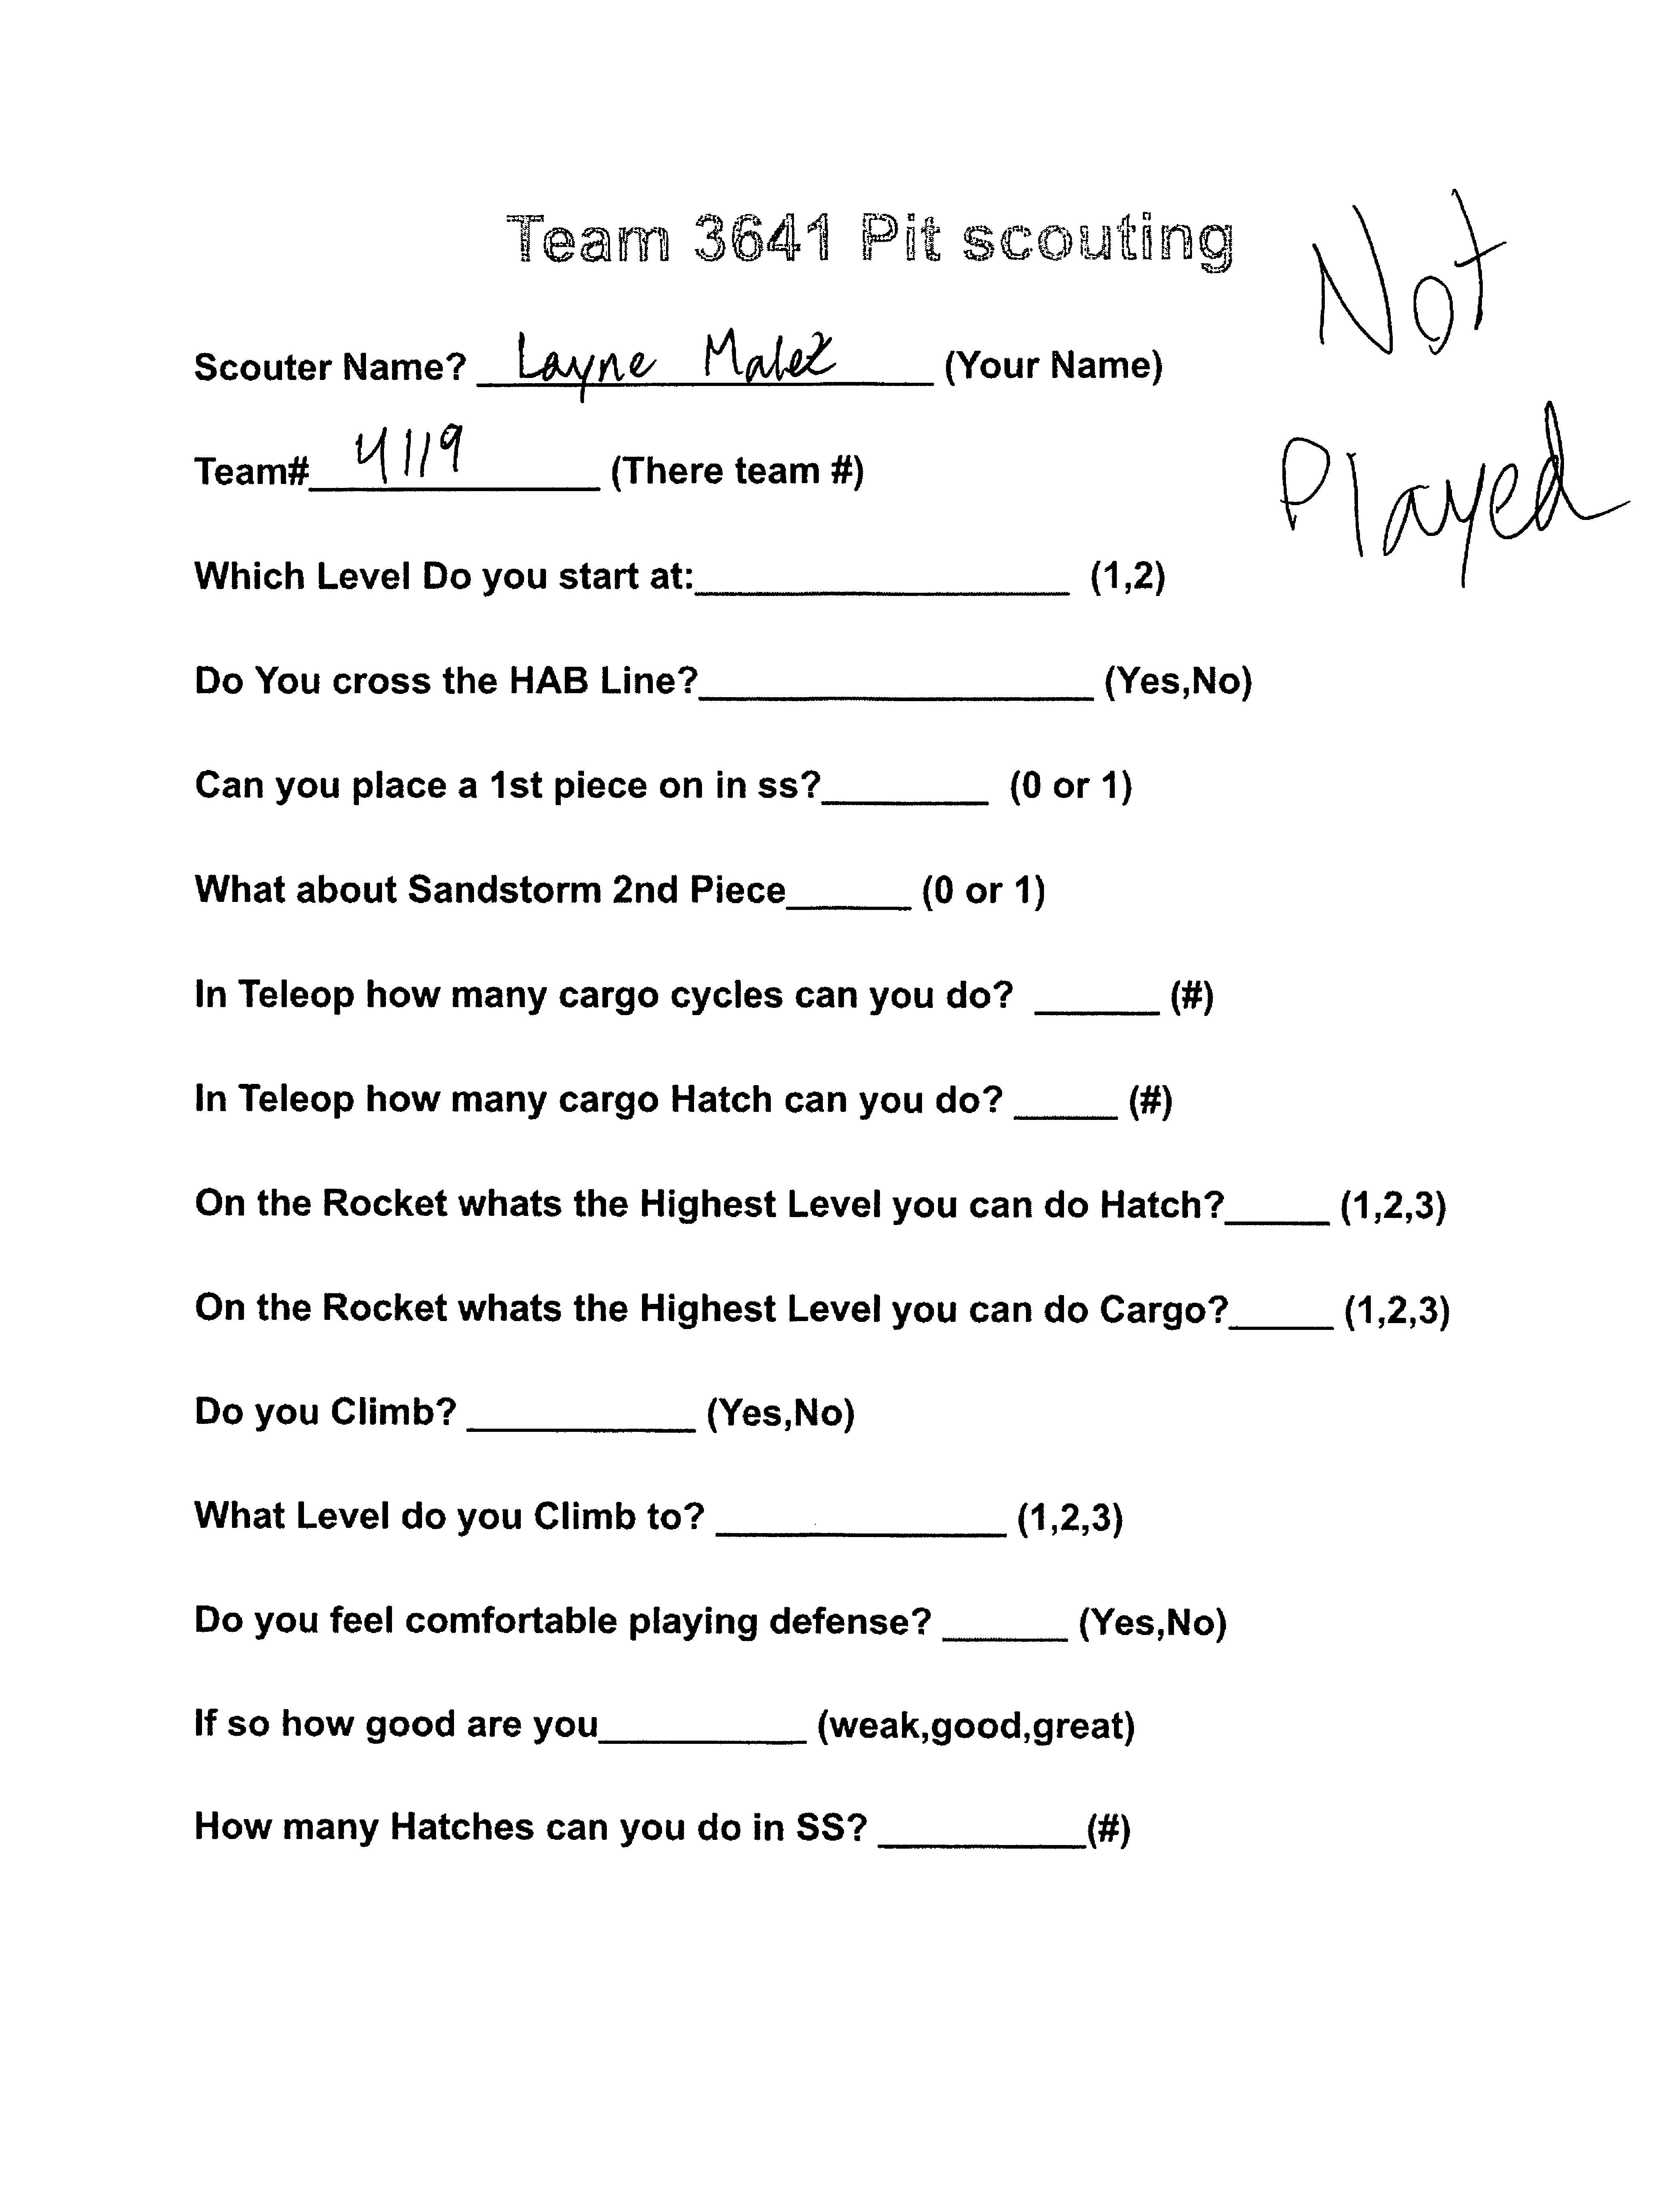 Team 3641 Pit scouting
Not
Played
Scouter Name? Layne (Your Name)
Team# 4119 (There team #)
Which Level Do you start at:____ (1,2)
Do You cross the HAB Line?____ (Yes,No)
Can you place a 1st piece on in ss?____ (0 or 1)
What about Sandstorm 2nd Piece____ (0 or 1)
In Teleop how many cargo cycles can you do? ____ (#)
In Teleop how many cargo Hatch can you do? ____ (#)
On the Rocket whats the Highest Level you can do Hatch?____ (1,2,3)
On the Rocket whats the Highest Level you can do Cargo?____ (1,2,3)
Do you Climb? ____ (Yes,No)
What Level do you Climb to? ____ (1,2,3)
Do you feel comfortable playing defense? ____ (Yes,No)
If so how good are you____ (weak,good,great)
How many Hatches can you do in SS? ____(#)